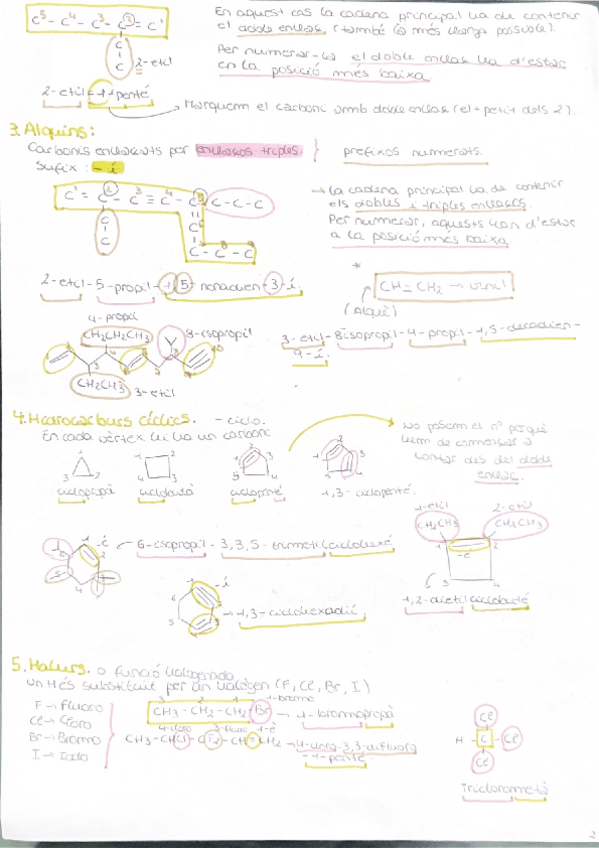 En aquest cas la cadena principal ha de contenir
el doble enllaç, (també la més llarga possible).
C⁵ - C⁴ - C³ - C² = C¹
C
C 2-etil
Per numerar-la el doble enllaç ha d'estar
en la posició més baixa.
2-etil-1-penté
Marquem el carboni amb doble enllaç (el + petit dels 2).
3. Alquins:
Carbonis enllaçats per enllaços triples.
Sufix: -í
prefixos numerats.
C¹ = C² - C³ ≡ C⁴ - C⁵ - C - C - C
C
C
C⁶
C - C - C
→ La cadena principal ha de contenir
els dobles i triples enllaços
Per numerar, aquests han d'estar
a la posició més baixa
2-etil-5-propil-1,5-nonadien-3-í.
*
CH=CH₂ → vinil
(Alquè)
4-propil
CH₂CH₂CH₃
8-isopropil
CH₂CH₃
3-etil
3-etil-8isopropil-4-propil-1,5-decadien-
9-í.
4. Hidrocarburs cíclics. -ciclo.
En cada vèrtex hi ha un carboni
ciclopropà
ciclobutà
ciclopenté
1,3-ciclopenté.
No posem el nº perquè
hem de començar a
contar des del doble
enllaç.
6-isopropil-3,3,5-trimetilciclohexé
1-etil
2-etil
CH₂CH₃
CH₂CH₃
1,2-dietilciclobuté
1,3-ciclohexadií.
5. Halurs. o funció halogenada
Un H és substituït per un halògen (F, Cl, Br, I)
F → Fluoro
Cl → Cloro
Br → Bromo
I → Iodo
1-bromo
CH₃ - CH₂ - CH₂ - Br → 1-bromopropà
4-cloro 3-fluoro 1-è
CH₃-CHCl-CF₂-CH=CH₂ → 4-cloro-3,3-difluoro
-1-penté.
Cl
H - C - Cl
Cl
Triclorometà
2